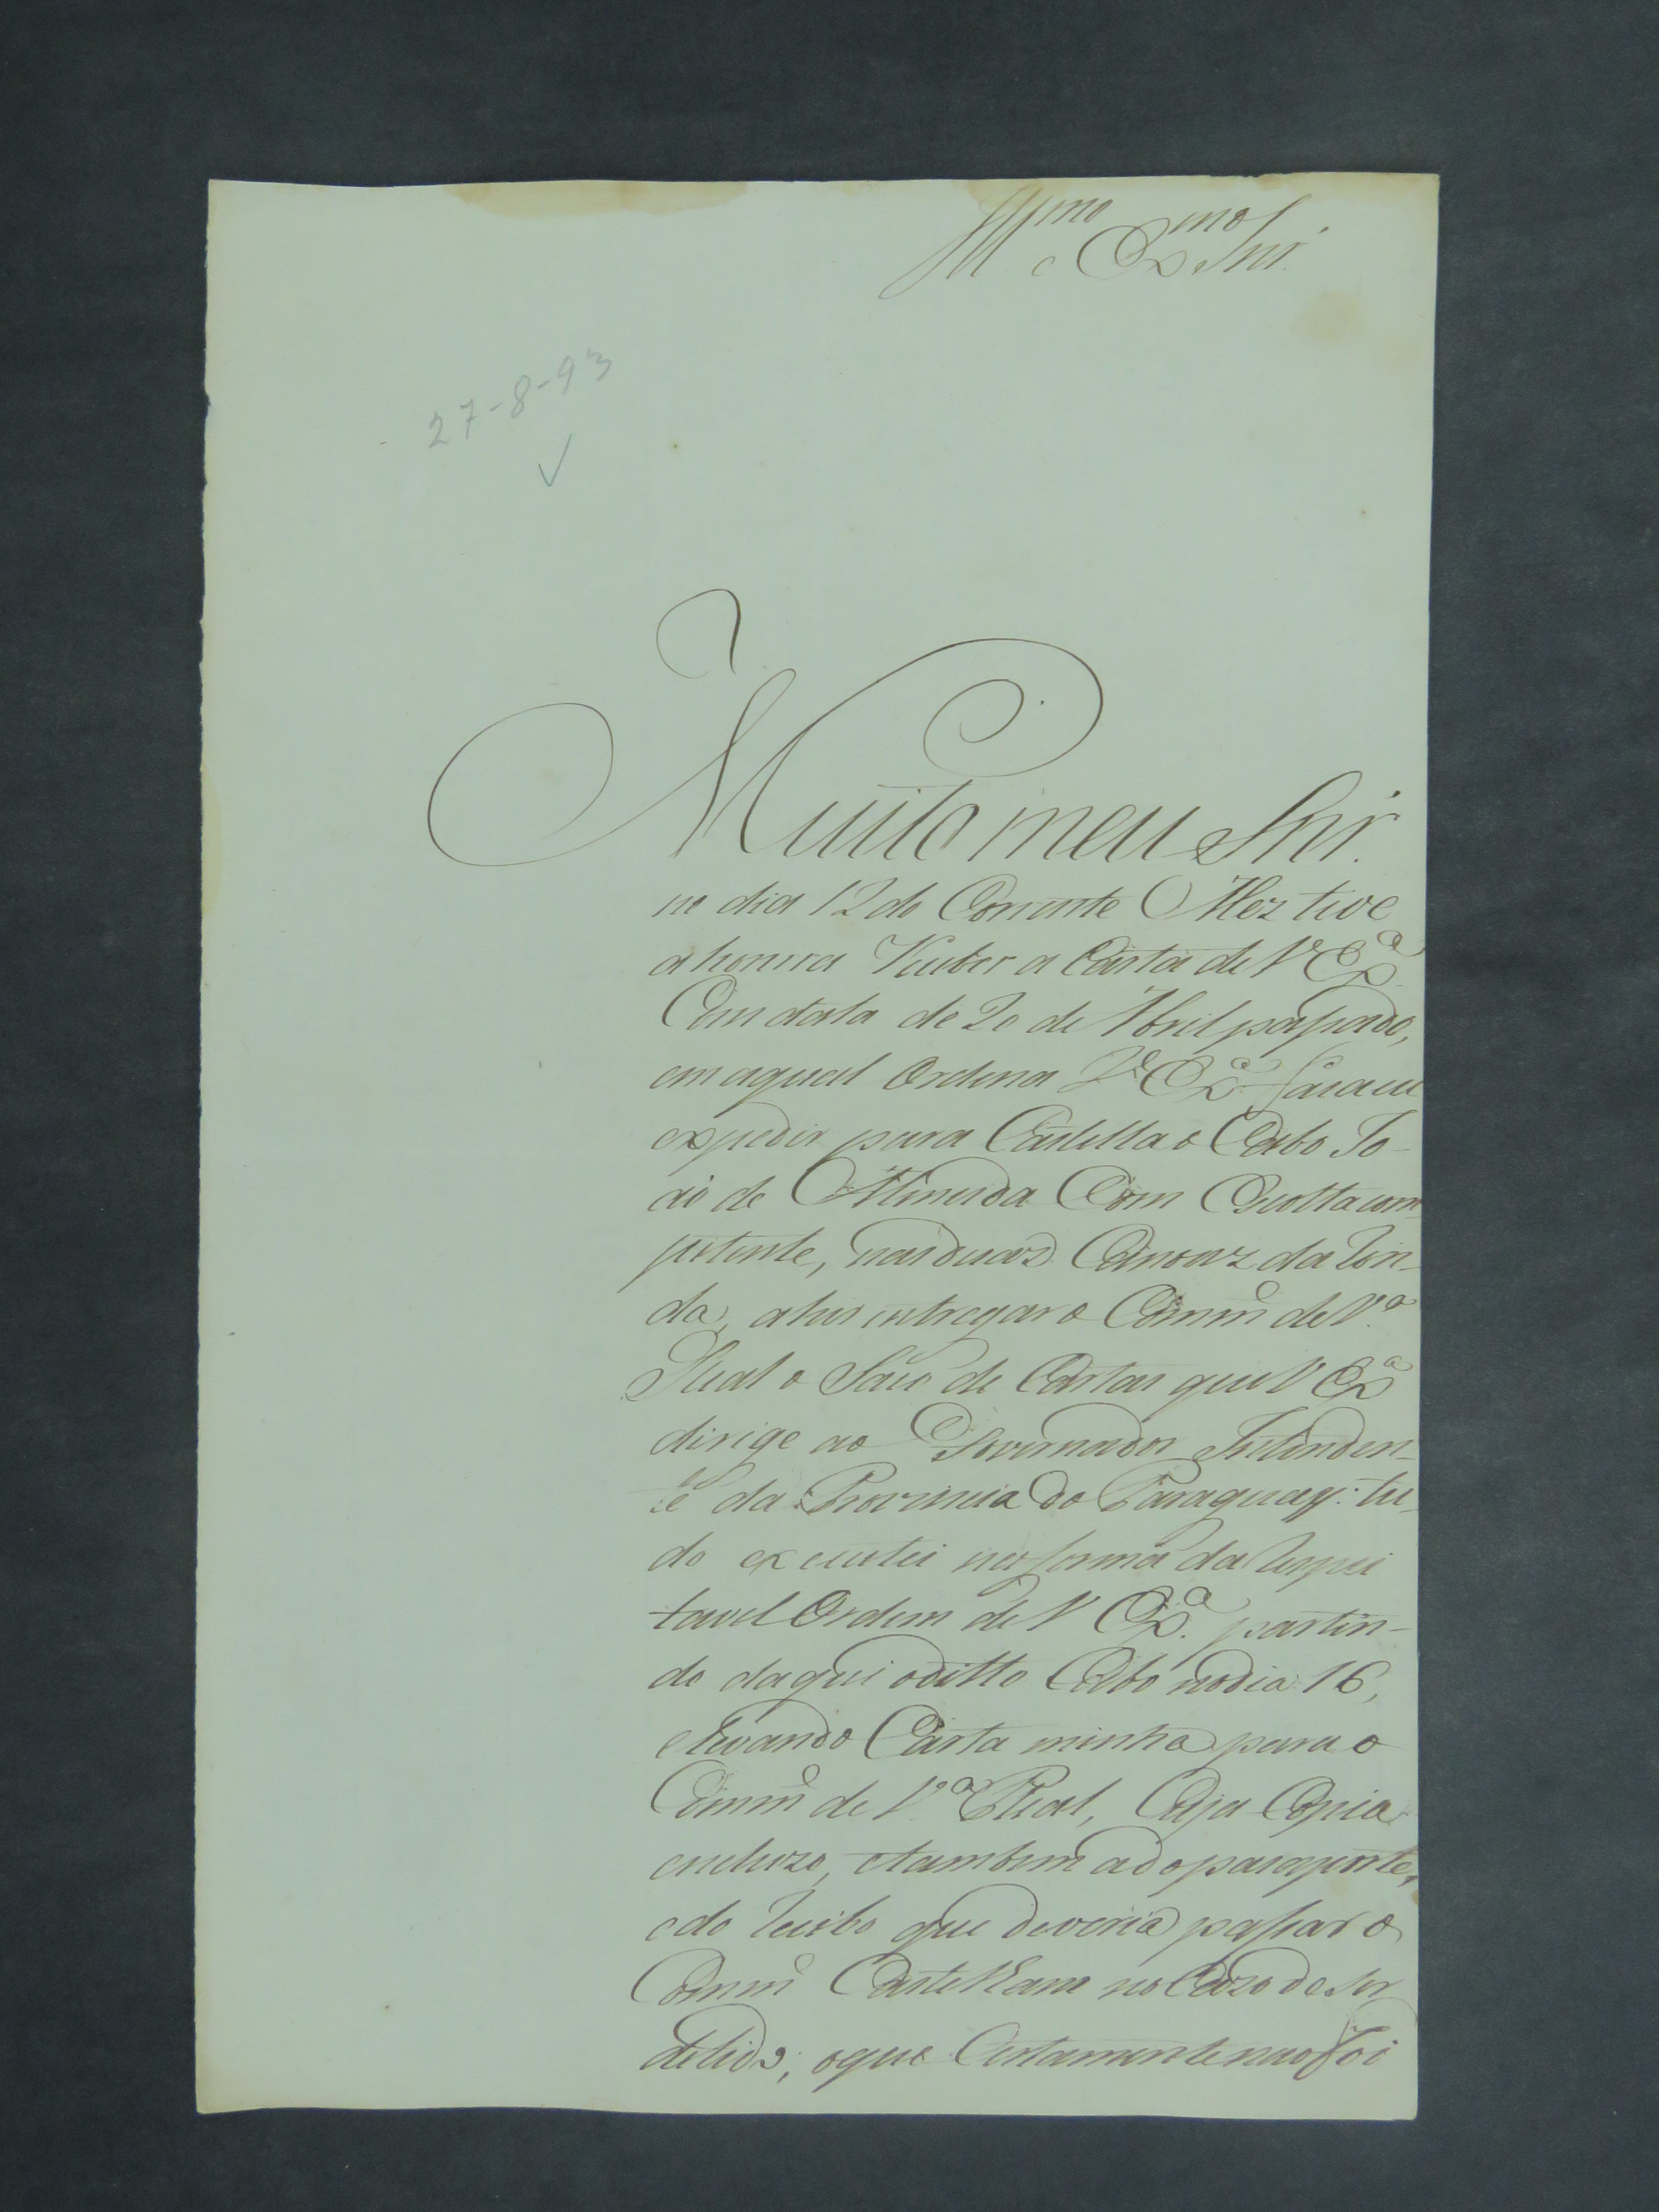 Ill.mo e Ex.mo Snr.
27-8-93
Muito meu Snr.
no dia 12 do Corrente Mez tive
a honrra Receber a Carta de V. Ex.a
Com data de 20 de Abril passado,
em a qual Ordena V. Ex.a faça eu
expedir para Castella o Cabo Jo-
aõ de Almeida Com Escolta com-
petente, nas duas Canoas da Ron-
da, a hir entregar o Comm.e de V.a
Real o Saco de Cartas que V. Ex.a
dirige ao Governador Intenden-
te da Provincia do Paraguay: tu-
do executei na forma da Respei
tavel Ordem de V. Ex.a partin-
do daqui o ditto Cabo no dia 16,
e levando Carta minha para o
Comm.e de V.a Real, Cuja Copia
encluzo, e tambem a do parapente,
e do Recibo que deveria passar o
Comm.e Castelhano no Cazo de ser
detido, o que Certamente naõ foi